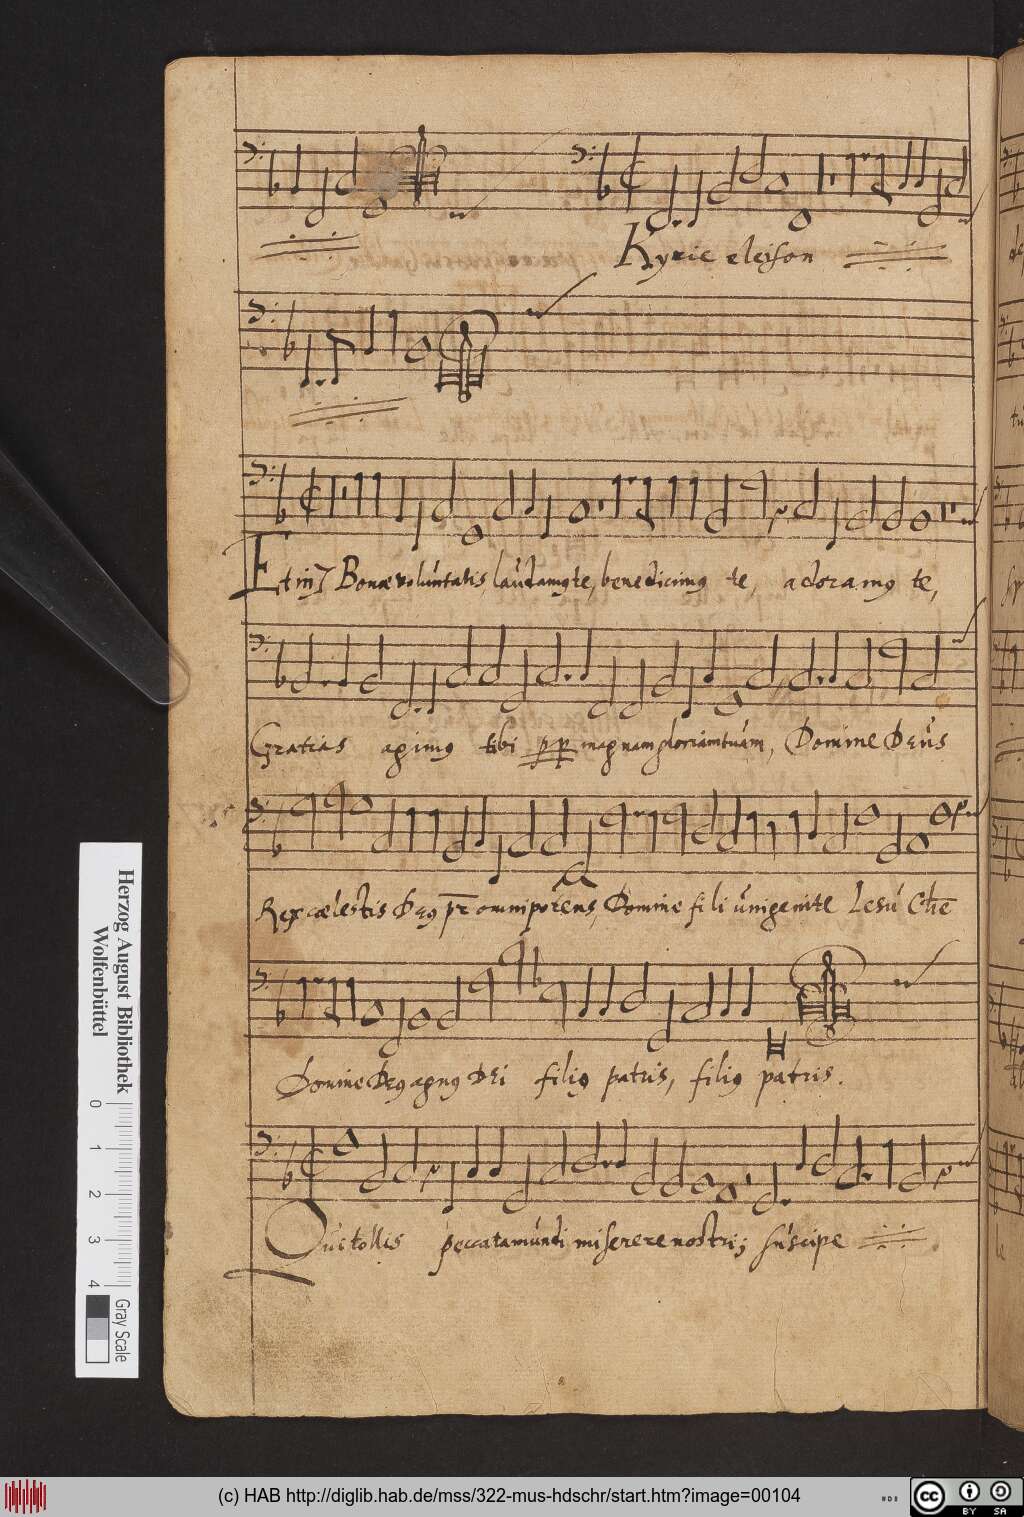 Kyrie eleison
Et in Bonæ voluntatis, laudamus te, benedicimus te, adoramus te,
Gratias agimus tibi pp magnam gloriam tuam, Domine Deus
Rex cælestis Deus pr omnipotens, Domine fili unigenite Iesu Che
Domine Deus agnus Dei filius patris, filius patris.
Qui tollis peccata mundi miserere nostri; suscipe
Herzog August Bibliothek
Wolfenbüttel
0 1 2 3 4
Gray Scale
(c) HAB http://diglib.hab.de/mss/322-mus-hdschr/start.htm?image=00104
cc BY SA